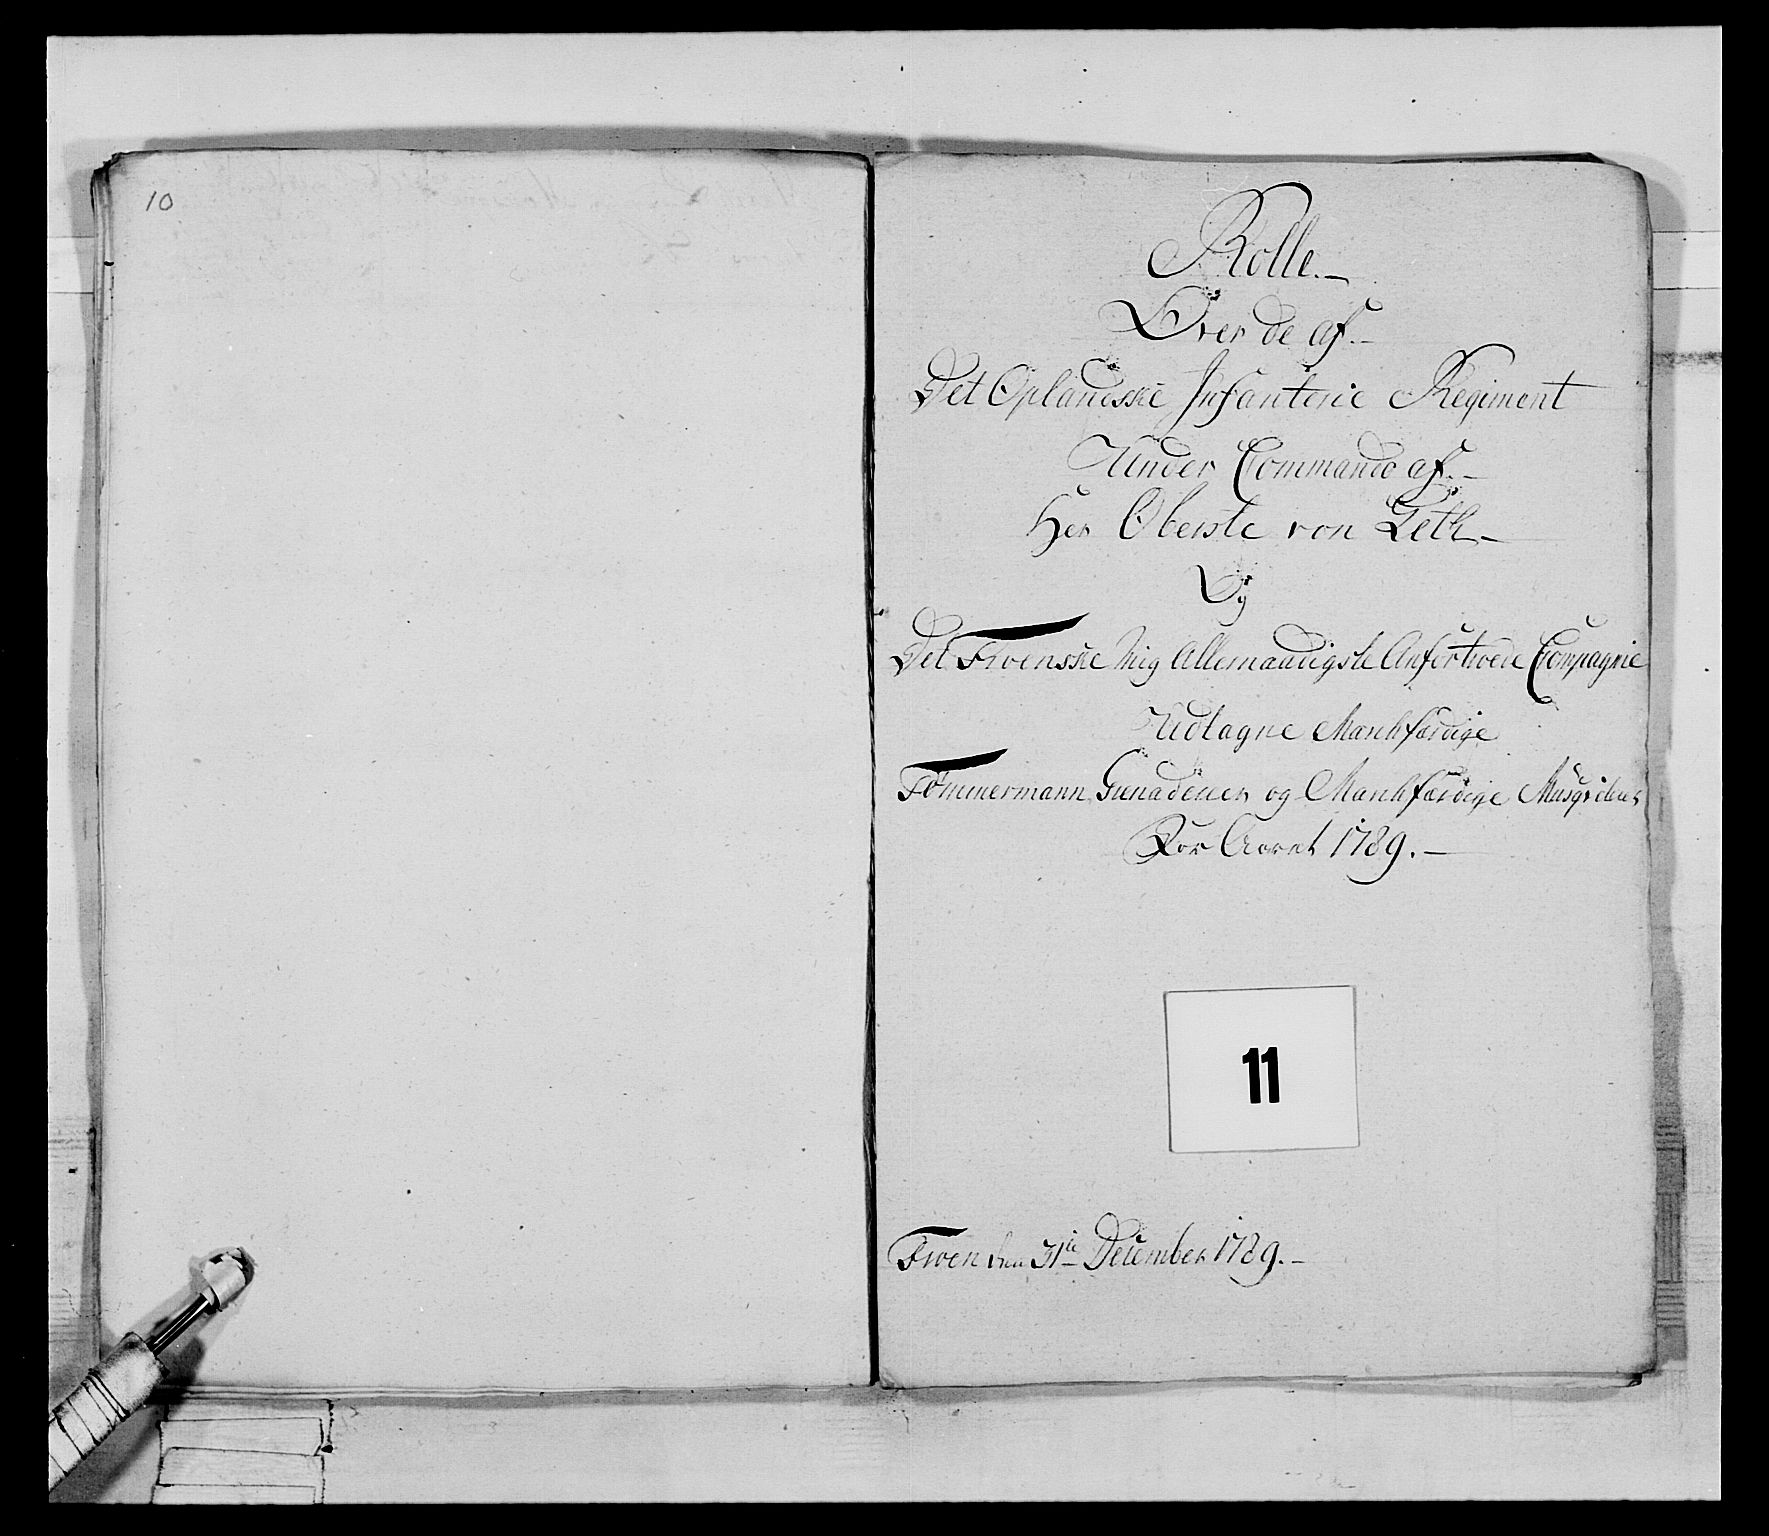 10
Rolle.
Over de af.
Det Oplandske Infanterie Regiment
Under Commando af.
Her Oberste von
Og
Det Froenske Mig Allernaadigste Anfortroede Compagnie
Udtagne Marchfærdige
Tømmermænn, Grenaderer og Marchfærdige Musqveterer
For Aaret 1789.
11
Froen den 31te December 1789.